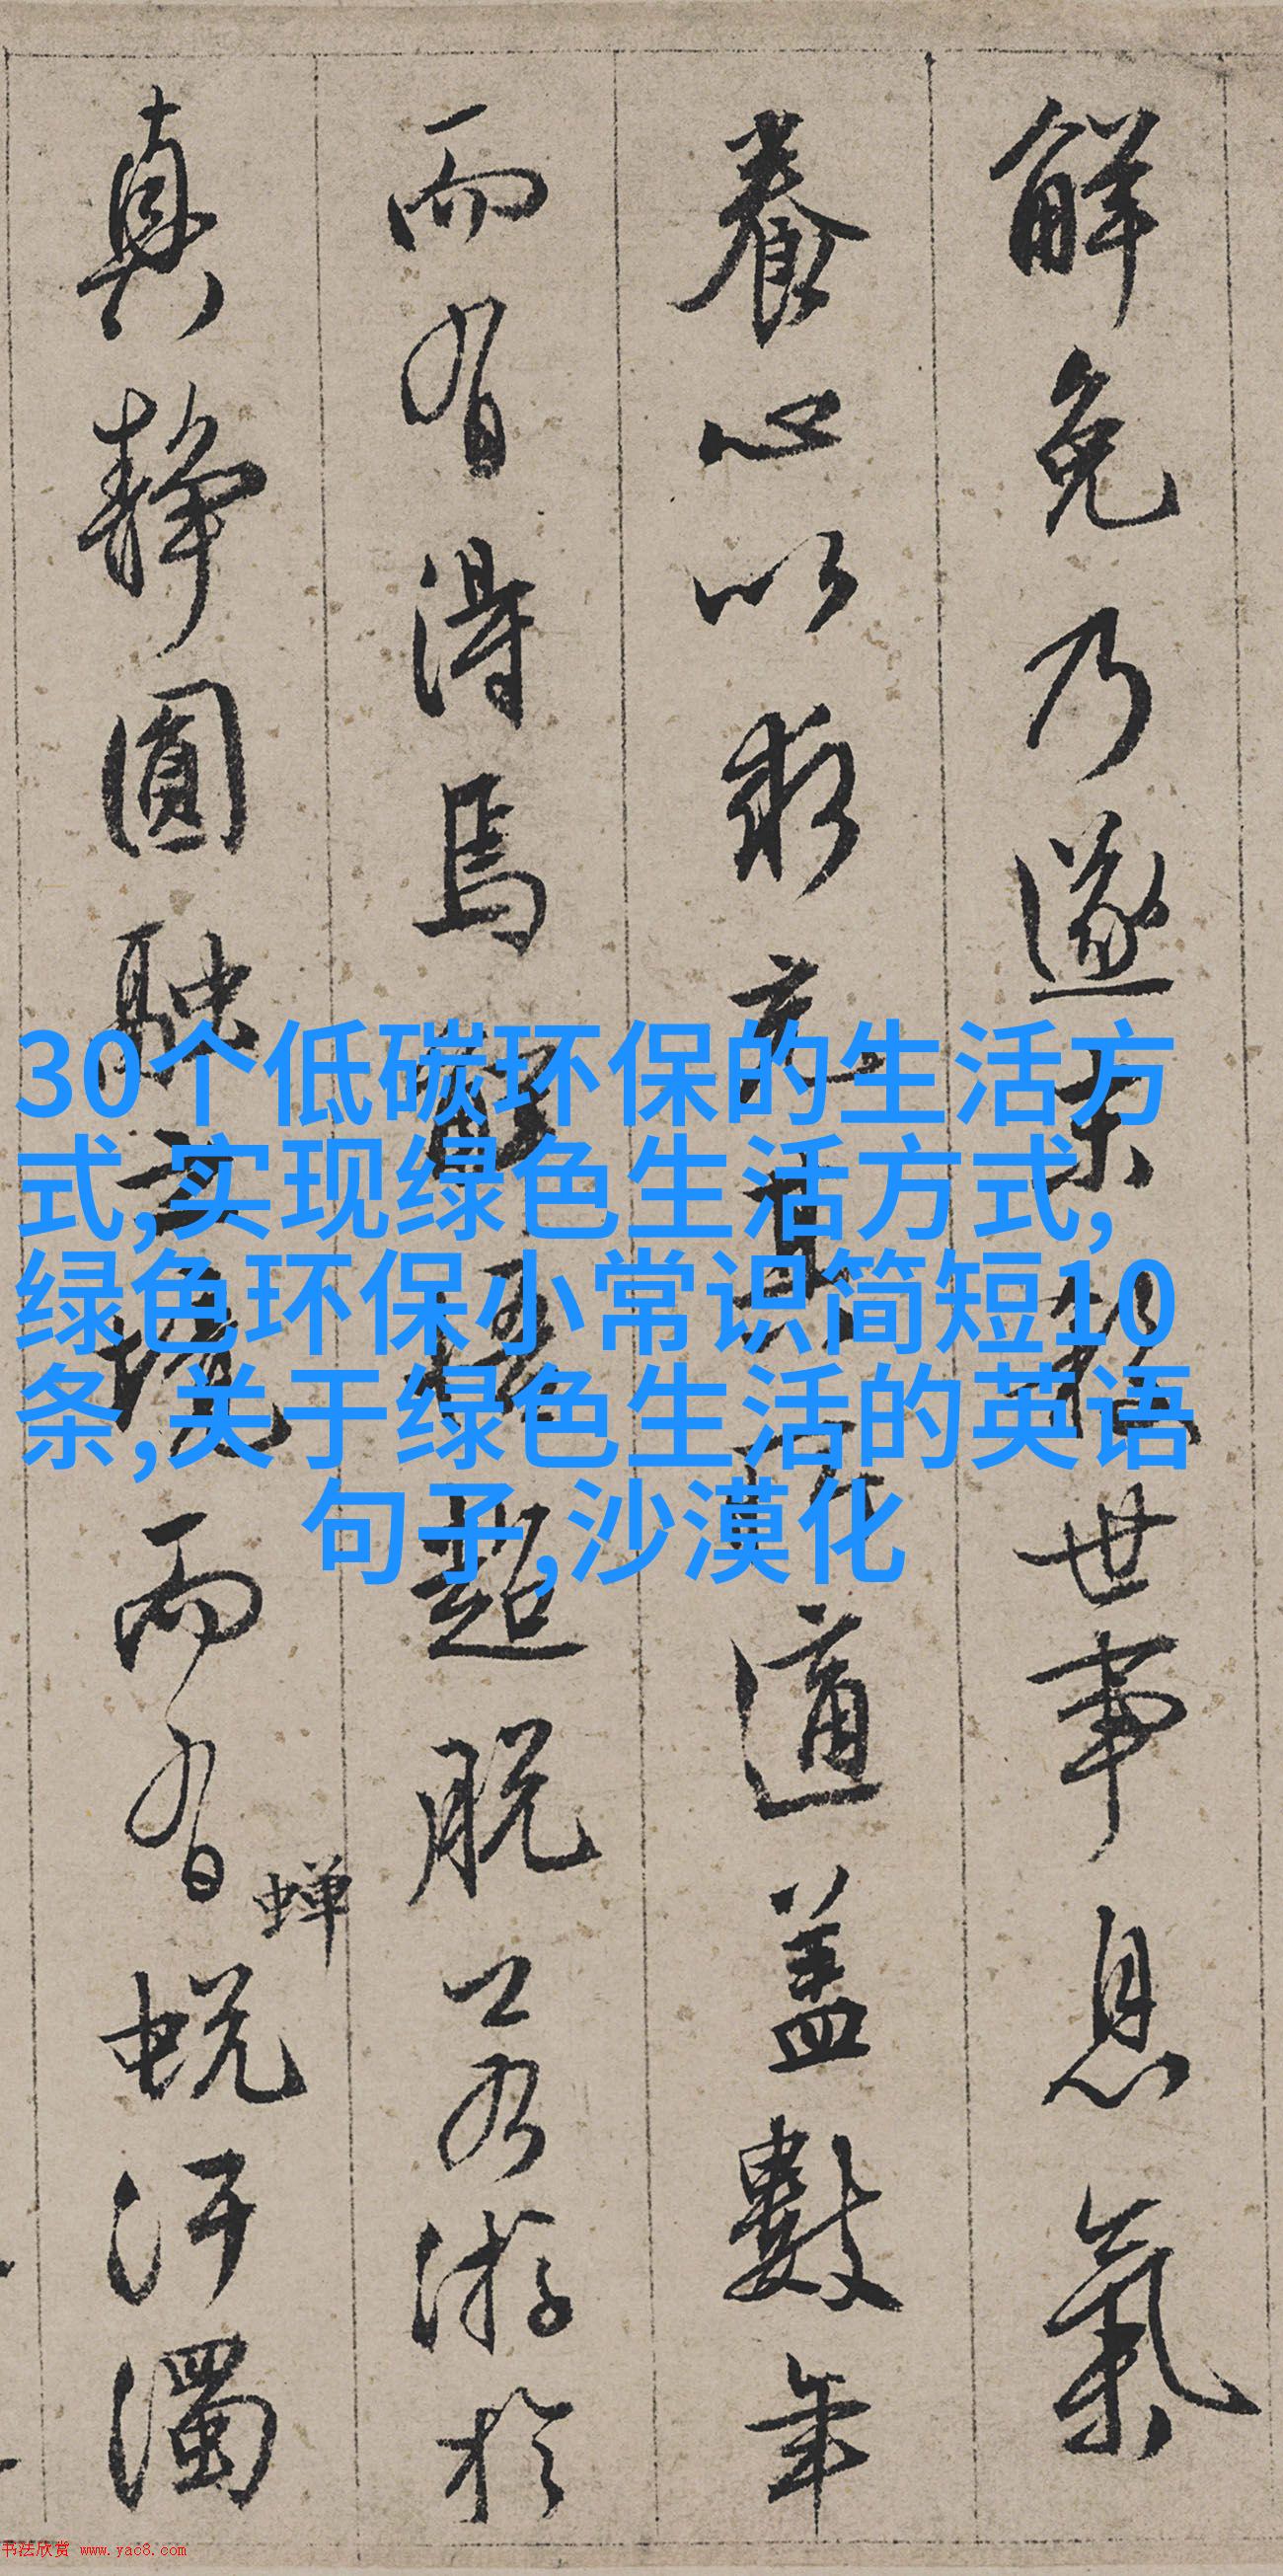 解免乃遂世事息氣
養心以求適蓋數年
而有得焉超脱游於
真静圓融之境而有蝉蜕汙濁
30个低碳环保的生活方
式,实现绿色生活方式,
绿色环保小常识简短10
条,关于绿色生活的英语
句子,沙漠化
书法欣赏 www.yac8.com